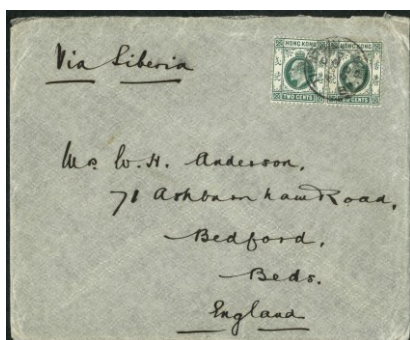 Via Siberia
HONG KONG HONG KONG
TWO CENTS TWO CENTS
Mrs W. H. Anderson,
71 Ashburnham Road,
Bedford,
Beds.
England